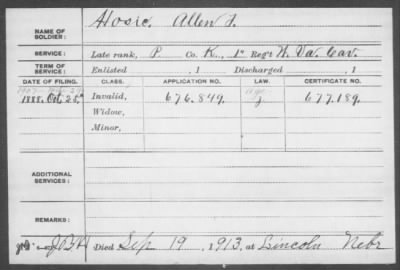 NAME OF SOLDIER: Hosic, Allen F.
SERVICE: Late rank, P. Co. K, 1st Reg't W. Va. Cav.
TERM OF SERVICE: Enlisted , 1 Discharged , 1
DATE OF FILING. CLASS. APPLICATION NO. LAW. CERTIFICATE NO.
1888, Oct. 25 Invalid, 676.849. 677.189.
Widow,
Minor,
ADDITIONAL SERVICES:
REMARKS:
Died Sep 19, 1913, at Lincoln Nebr